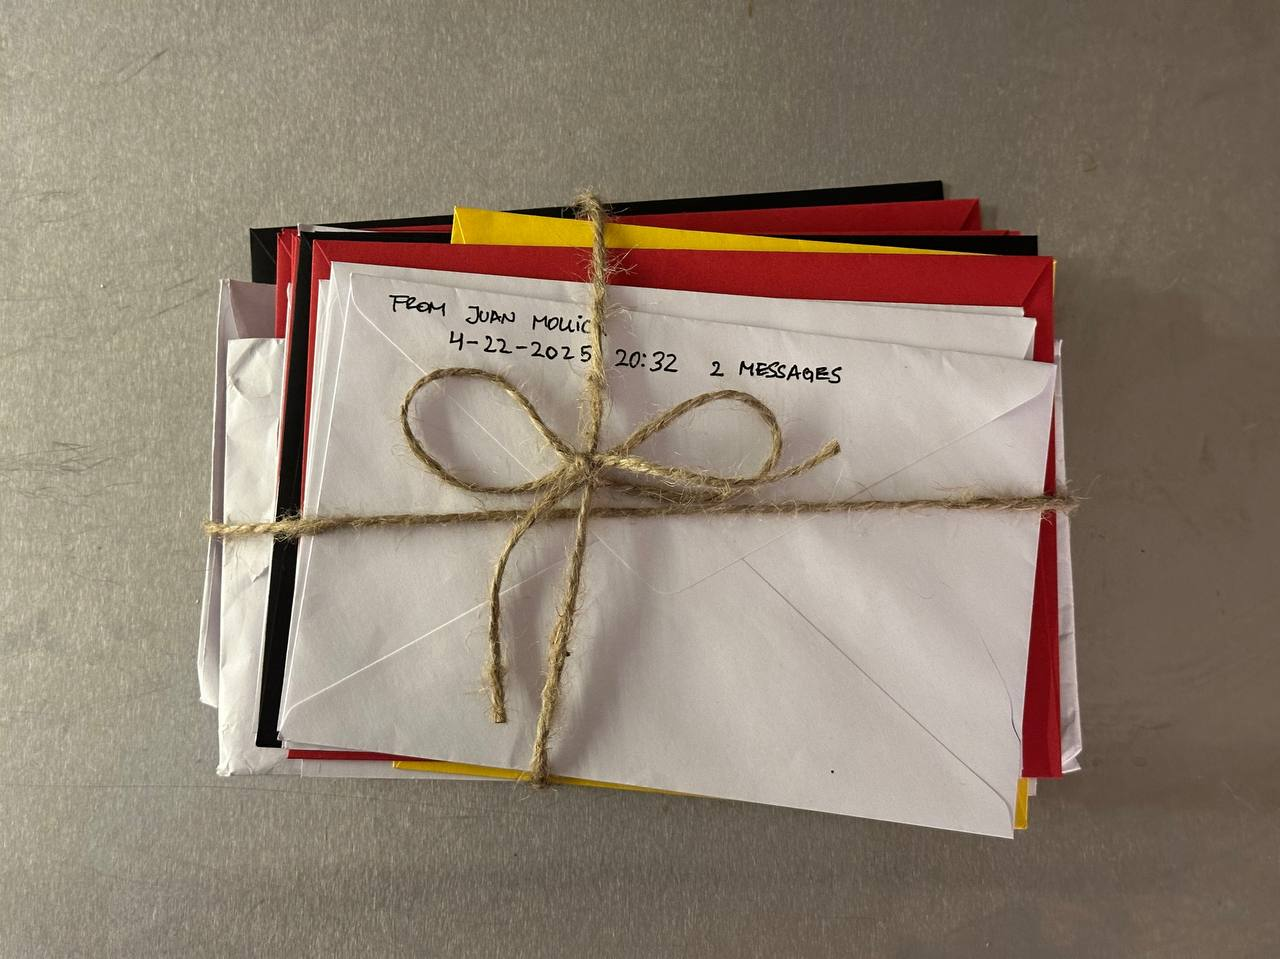 FROM JUAN
4-22-2025 20:32 2 MESSAGES